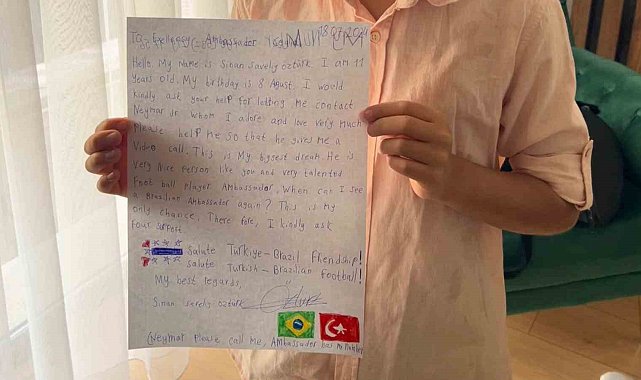 18.07.2024
To Exellency Ambassador
Hello My Name is Sinan Savely öztürk. I am 11
years old. My birthday is 8 Agust. I would
kindly ask your help for letting me contact
Neymar Jr. whom I adore and love very much
Please help me so that he gives me a
Video call. This is My bigest dream. He is
very Nice Person like you and very talented
Foot ball Player Ambassador. When can I see
a Brasilian Ambassador again? This is my
only chance. There fore, I kindly ask
your support.
Salute Türkiye-Brazil Friendship!
Salute Turkish-Brazilian football!
My best regards,
Sinan Savely öztürk
(Neymar Please call me, Ambassador has My Number